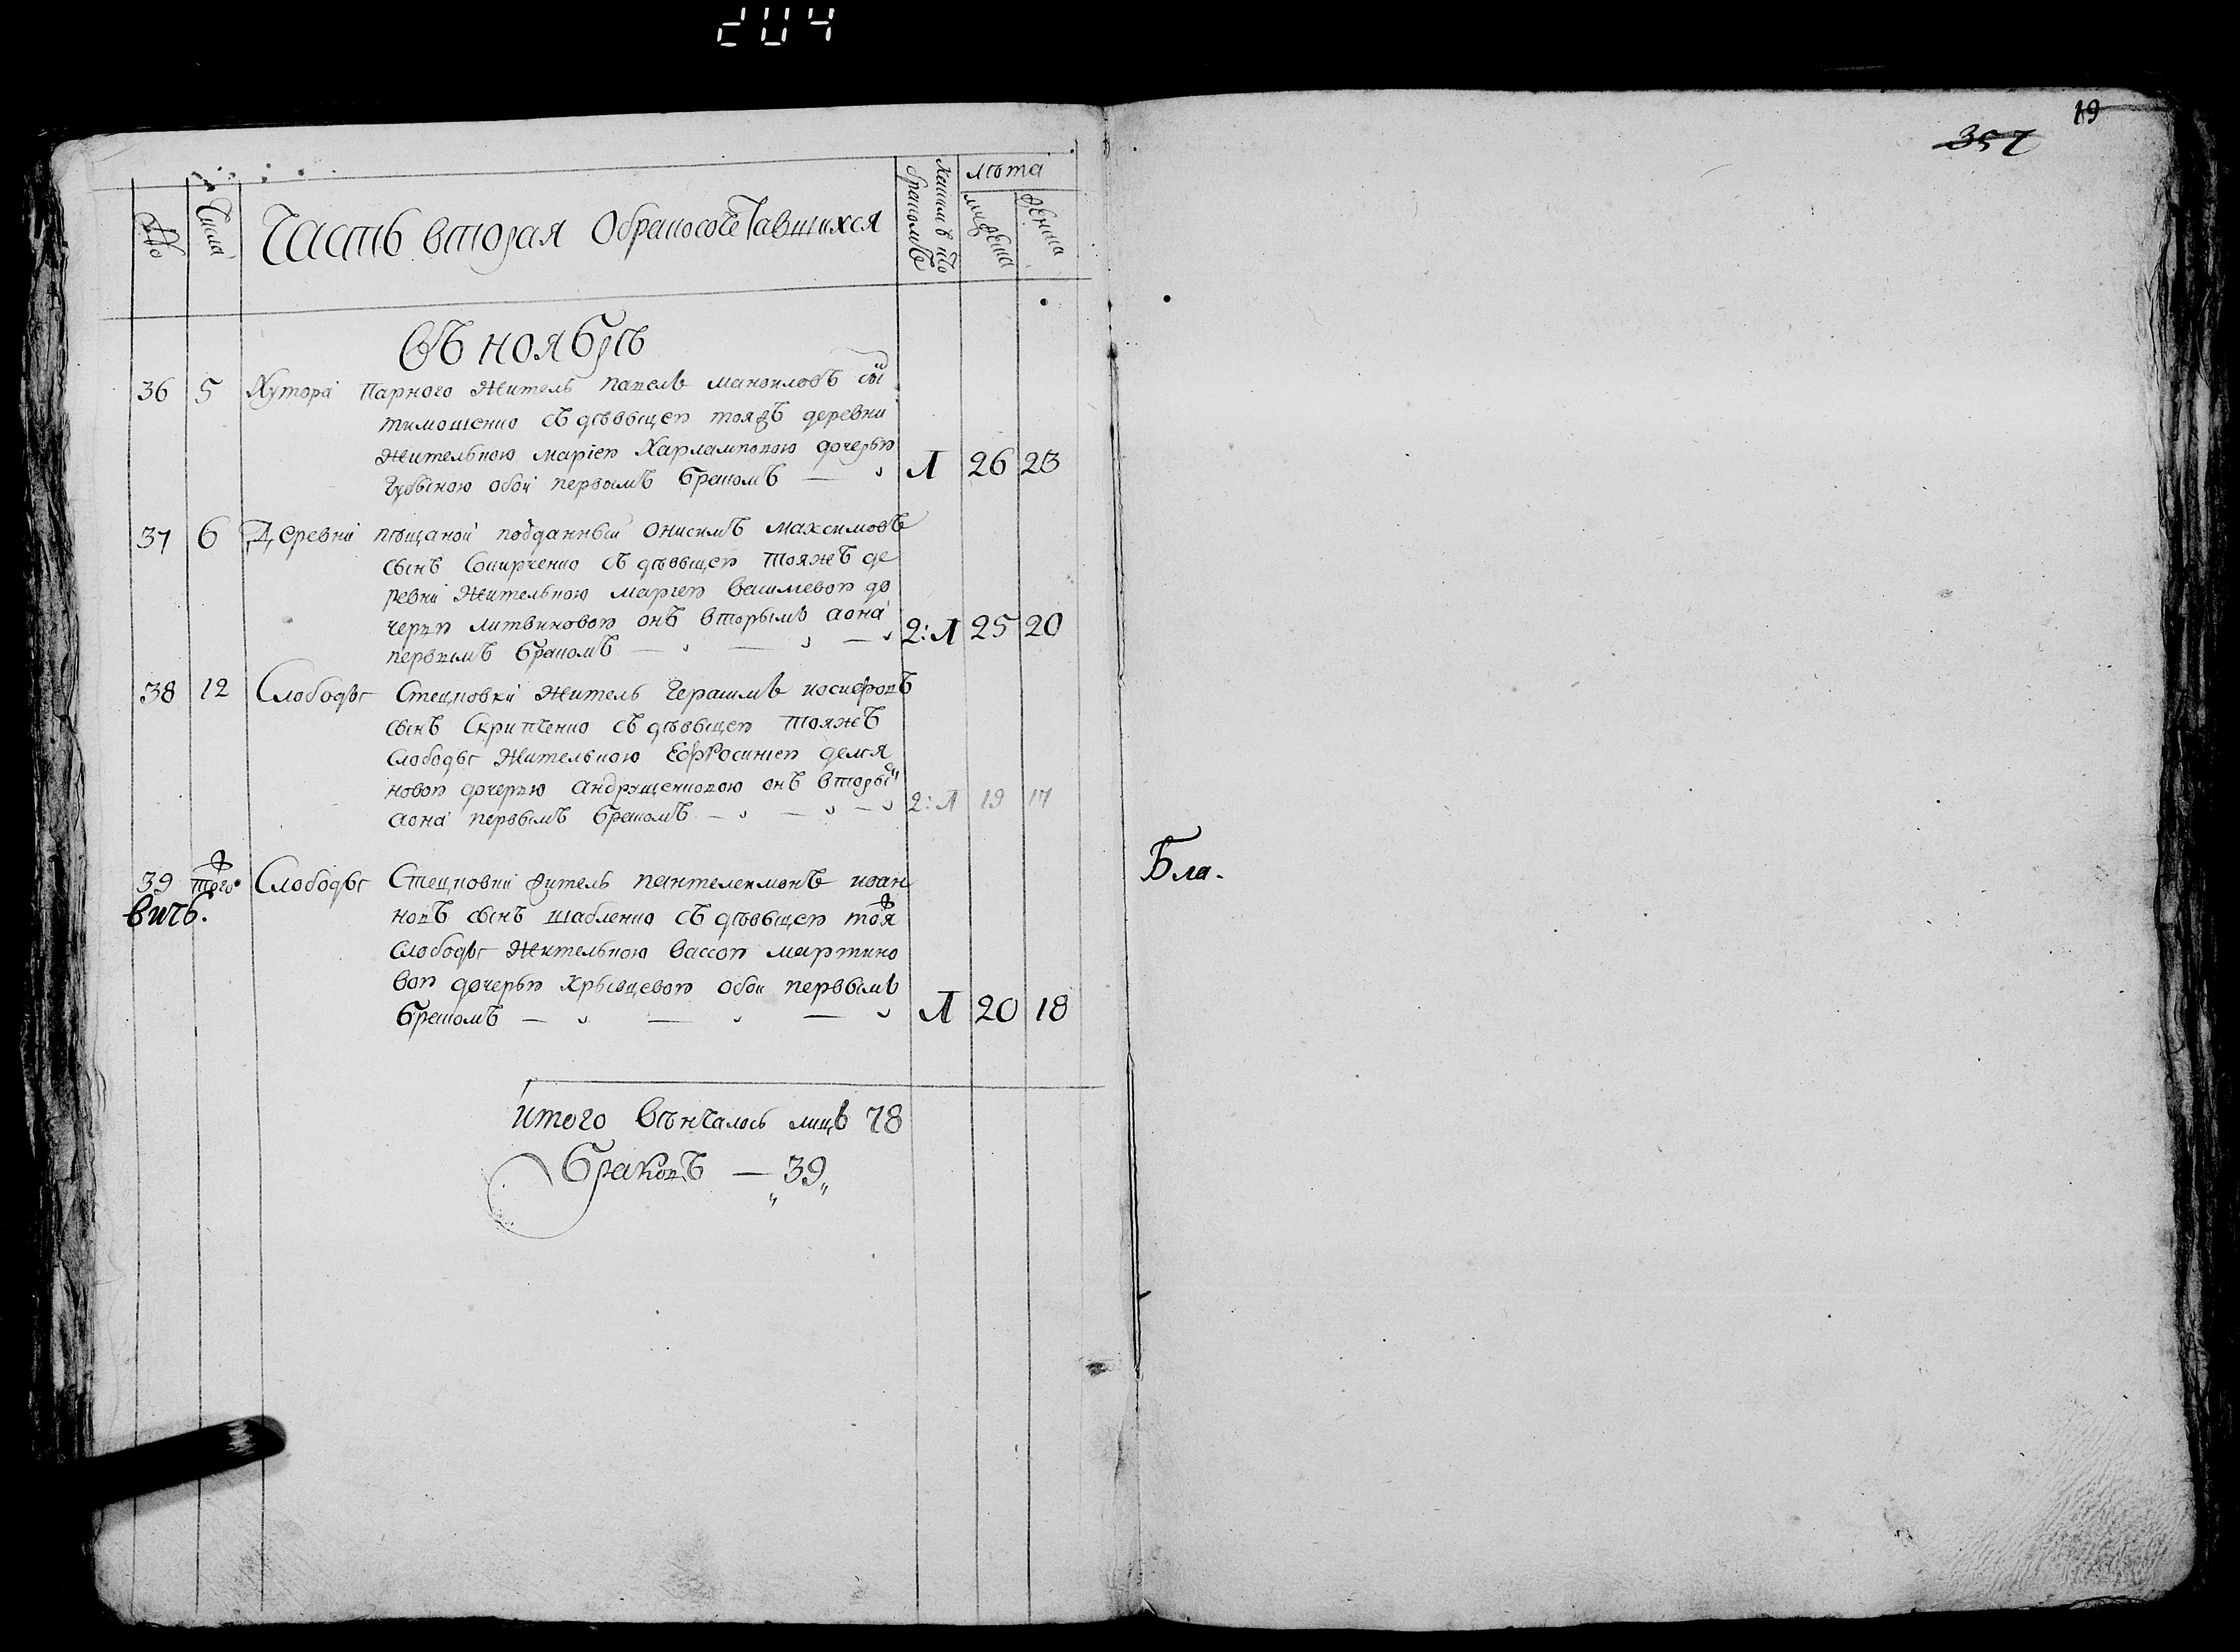 204
19
357
Числа
Часть вторая Обракосочетавшихся
Которимъ кто бракомъ
лѣта
мужеска
женска
Въ ноябрѣ
36 5 Хутора Парного житель павелъ мановловъ сы
тимошенко съ дѣвицею тояжъ деревни
жительною маріею Харламповою дочерью
Губиною обои первымъ бракомъ — А 26 23
37 6 Деревни пѣщаной подданный онисимъ максимовъ
сынъ Сокирченко съ дѣвицею тояжъ де
ревни жительною мариею василевою до
черью литвиновою онъ вторымъ аона
первымъ бракомъ — — 2:А 25 20
38 12 Слободы Стецковки житель Герасимъ иосифовъ
сынъ Скрипченко съ дѣвицею тояжъ
слободы жительною Ефросиниею демя
новою дочерью андрущенковою онъ вторы
аона первымъ бракомъ — — — 2:А 19 17
39 тогож Слободы Стецковки житель пантелеимонъ иоан
новъ сынъ шабленко съ дѣвицею тояж
слободы жительною вассою мартино
вою дочерью Хрывцевою обои первымъ
бракомъ — — — А 20 18
вичь.
Бла.
итого Вѣнчалось лицъ 78
браковъ — 39